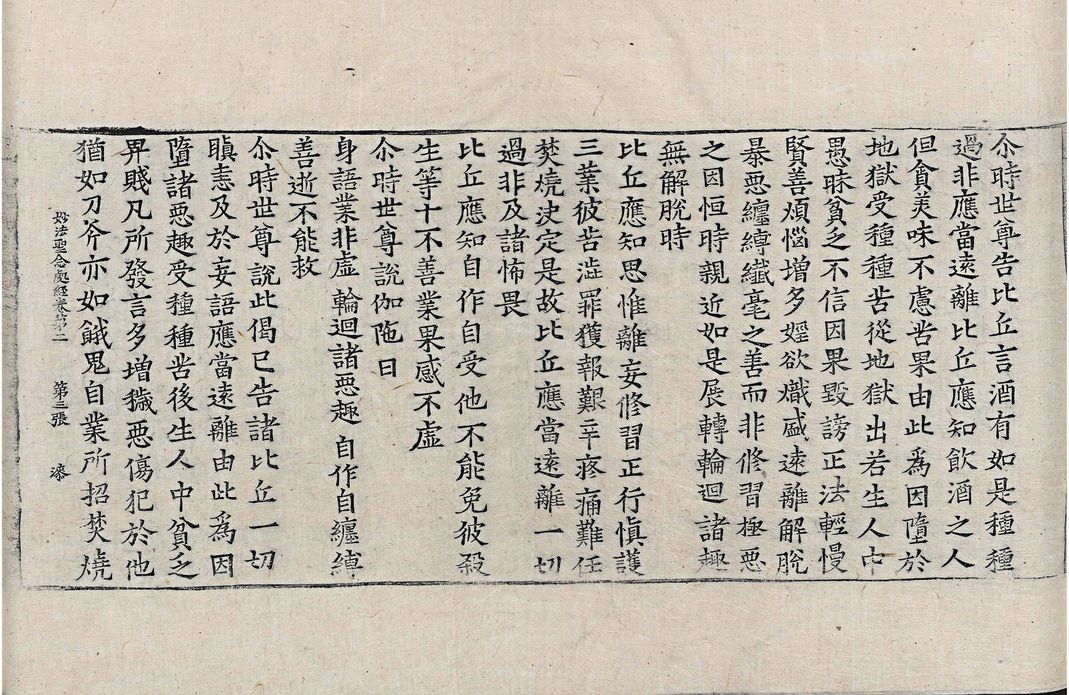 尒時世尊告比丘言酒有如是種種
過非應當遠離比丘應知飲酒之人
但貪美味不慮苦果由此爲因墮於
地獄受種種苦從地獄出若生人中
愚昧貧乏不信因果毀謗正法輕慢
賢善煩惱增多婬欲熾盛遠離解脫
暴惡纏縛纖毫之善而非修習極惡
之因恒時親近如是展轉輪迴諸趣
無解脫時
比丘應知思惟離妄修習正行慎護
三業彼苦澁罪獲報艱辛疼痛難任
焚燒決定是故比丘應當遠離一切
過非及諸怖畏
比丘應知自作自受他不能免彼殺
生等十不善業果感不虛
尒時世尊說伽陁曰
身語業非虛 輪迴諸惡趣 自作自纏縛
善逝不能救
尒時世尊說此偈已告諸比丘一切
瞋恚及於妄語應當遠離由此爲因
墮諸惡趣受種種苦後生人中貧乏
畀賤凡所發言多增穢惡傷犯於他
猶如刀斧亦如餓鬼自業所招焚燒
妙法聖念處經卷第二 第三張 漆